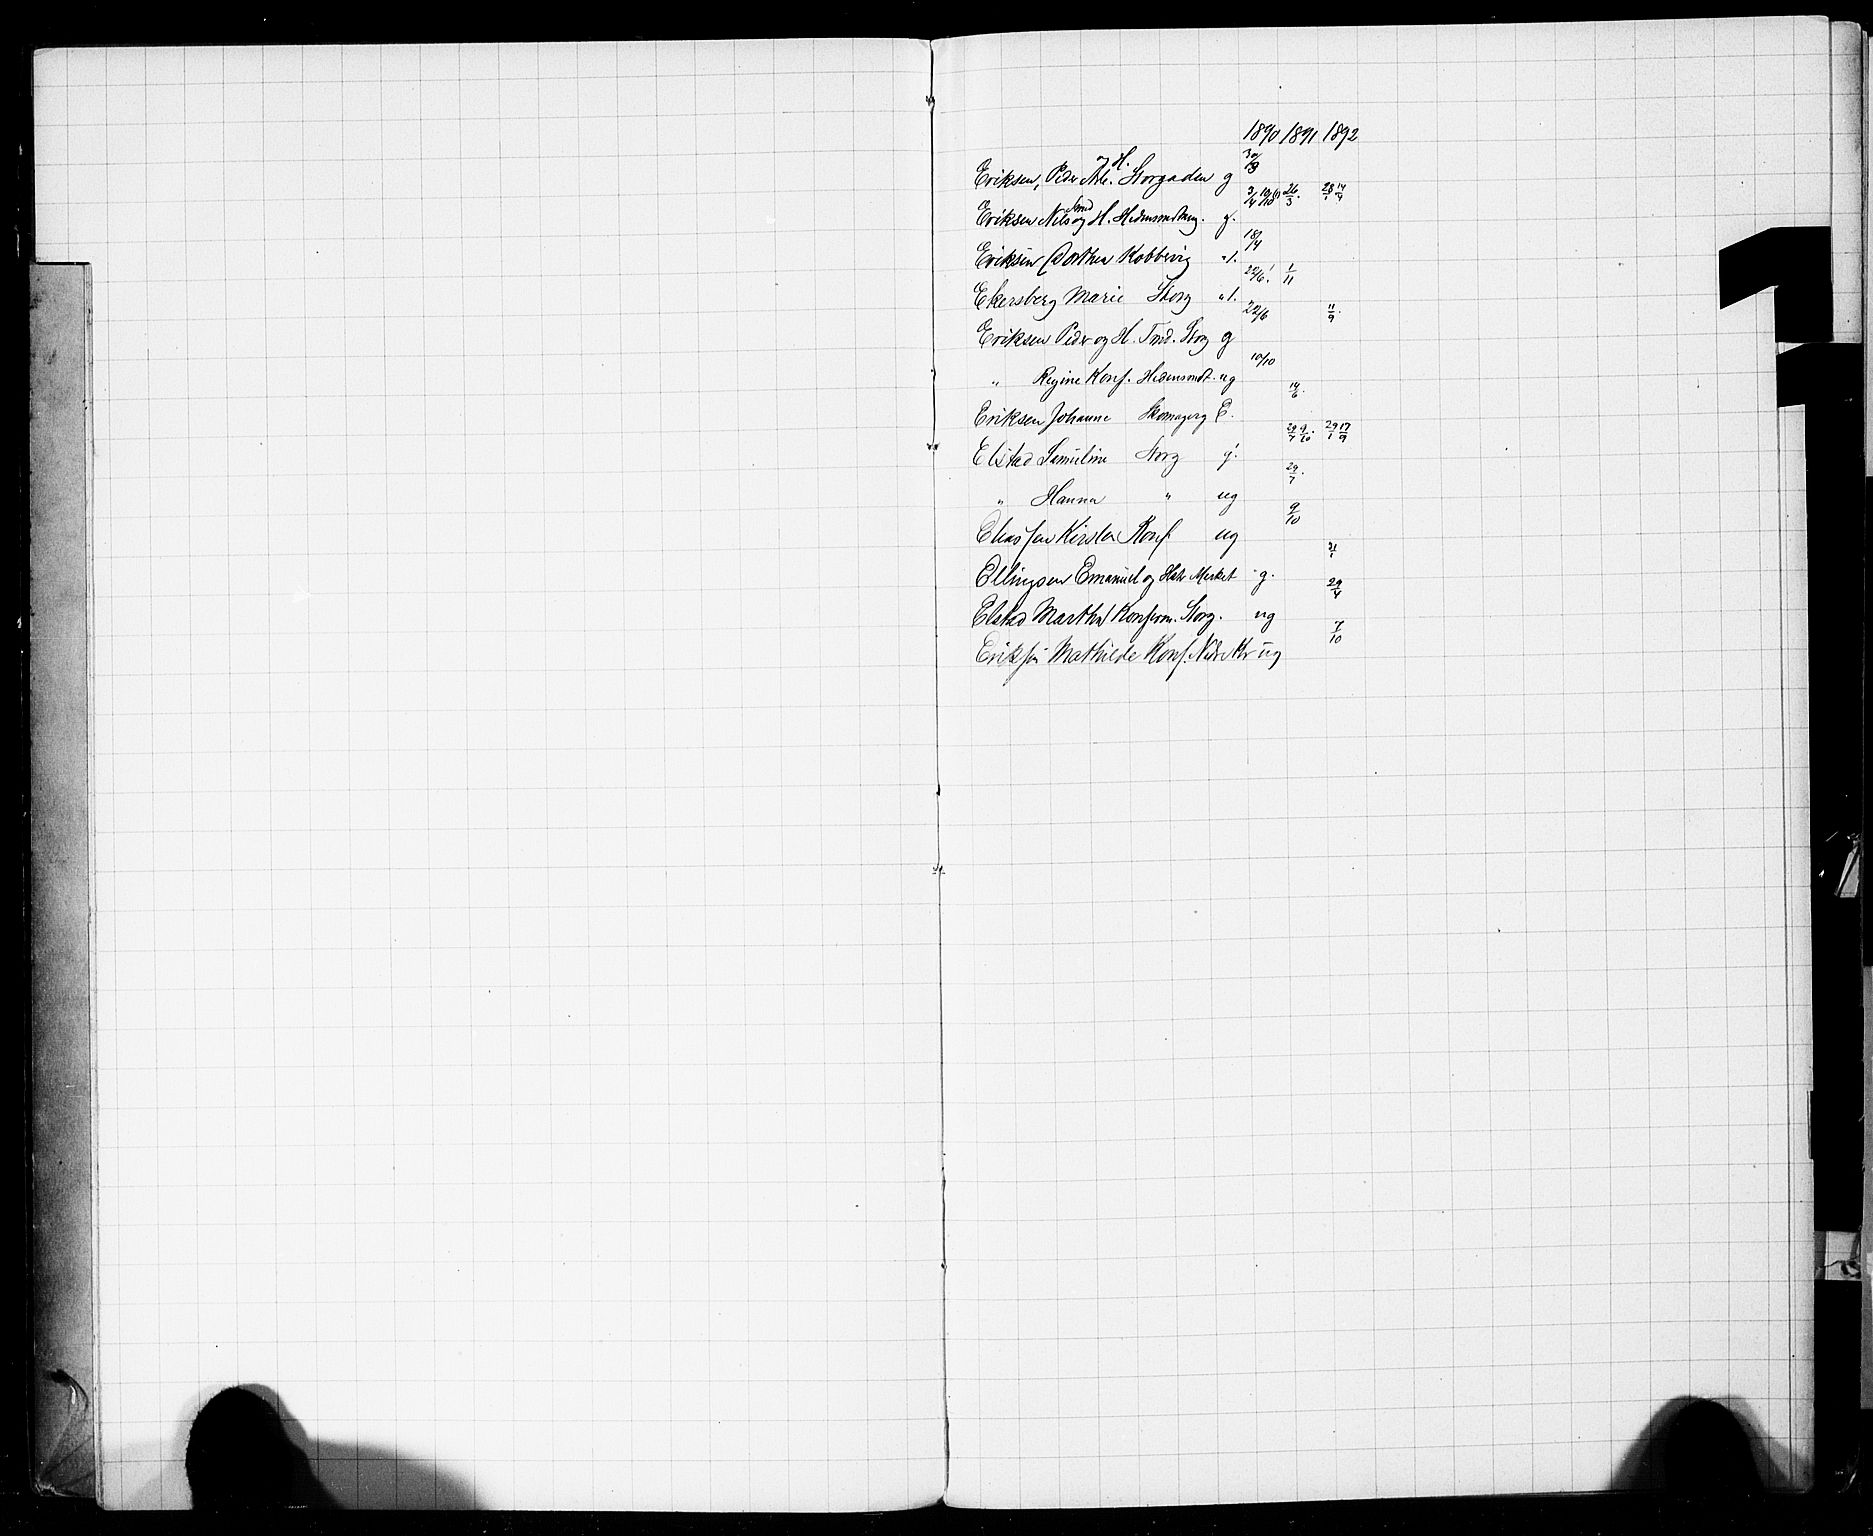 1890 1891 1892
Eriksen, Peder Arb. og H. Storgaden g 30/3
Eriksen Nils Smed og H. Hedensmdteng. g. 3/4 10/10 26/3. 28/1 14/4
Eriksen Dorthea Kobbervig 18/4
Ekersberg Marie Storg 22/6. 1/11
Eriksen Peder og H. Tmd. Storg g 22/6 11/9.
" Regine Konf. Hedensmdt. ug 10/10
Eriksen Johanne Skomagerg E. 14/6.
Elstad Samuline Storg g. 29/7 9/10. 29/1 17/9
" Hanna " ug 29/7.
Eliassen Kirsten Konf. ug 9/10
Ellingsen Emanuel og Hstr Merket g.
Elstad Martha Konfirm. Storg. ug 29/4
Eriksen Mathilde Konf. Nedre ug 7/10